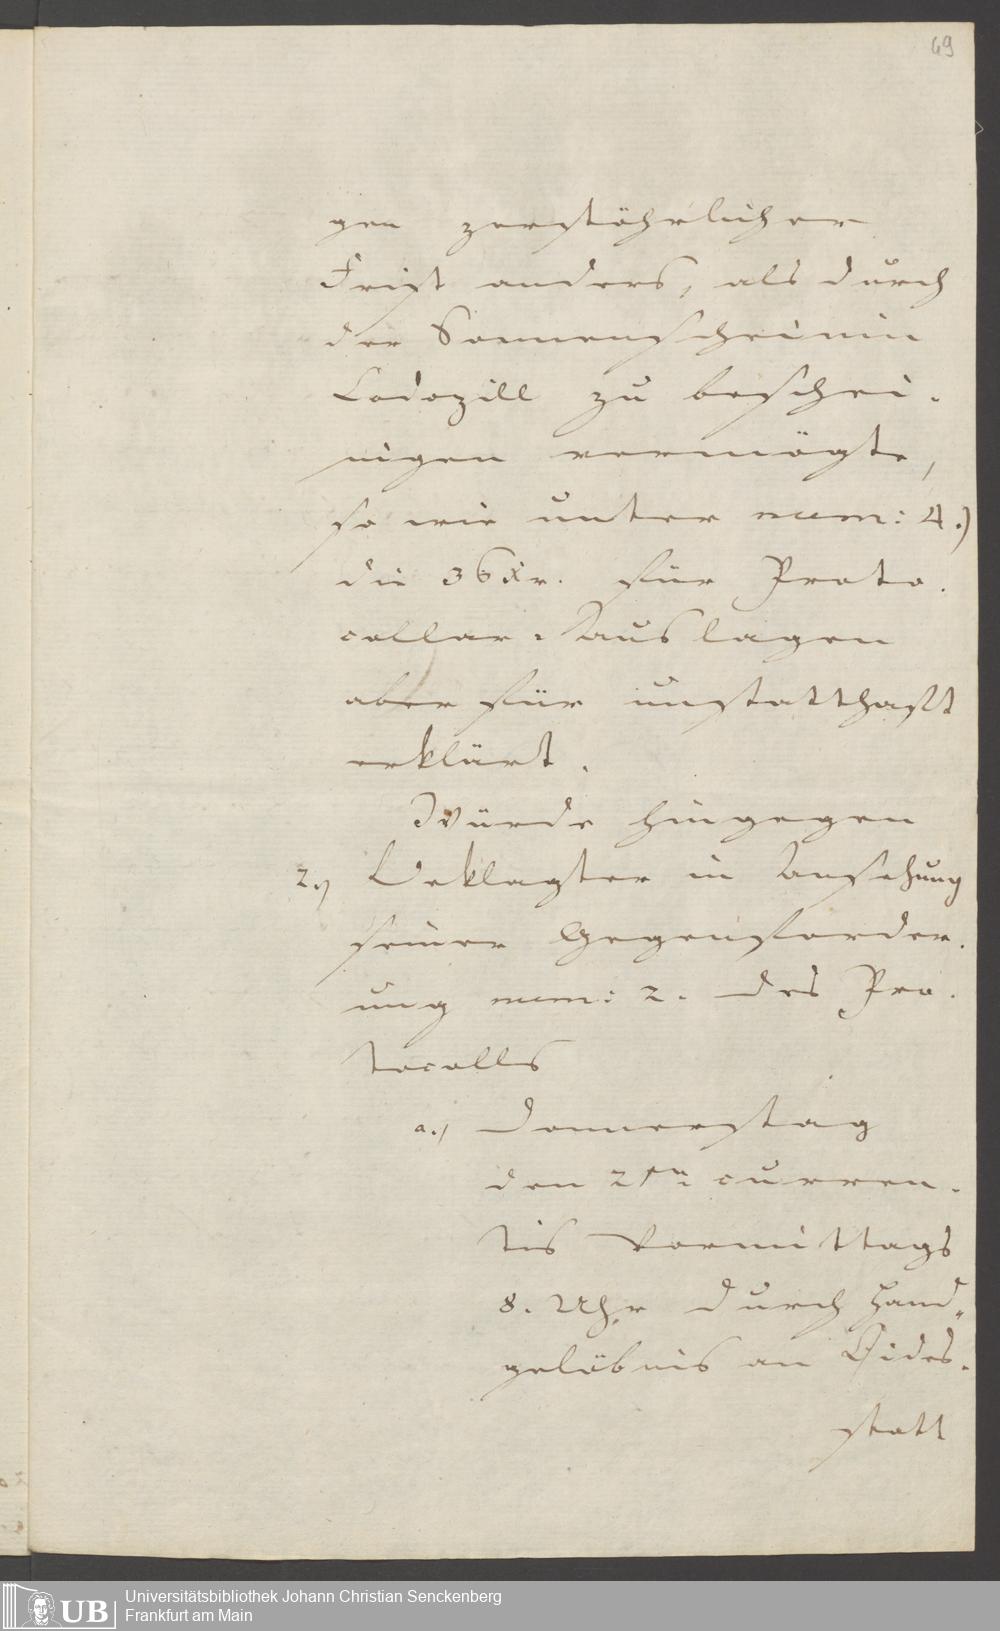 69
gen zerstöhrlicher
Frist anders, als durch
der Sonnenscheinin
Codozill zu beschei-
nigen vermögte,
so wie unter num: 4.)
die 36 Xr. für Proto-
collar-Auslagen
aber für unstatthaft
erklärt.
Würde hingegen
2.) Beklagter in Ansehung
seiner Gegenforder-
ung num: 2. des Pro-
tocolls
a.) Donnerstag
den curren-
tis Vormittags
8. Uhr durch Hand-
gelöbnis an Eides-
statt
UB
Universitätsbibliothek Johann Christian Senckenberg
Frankfurt am Main